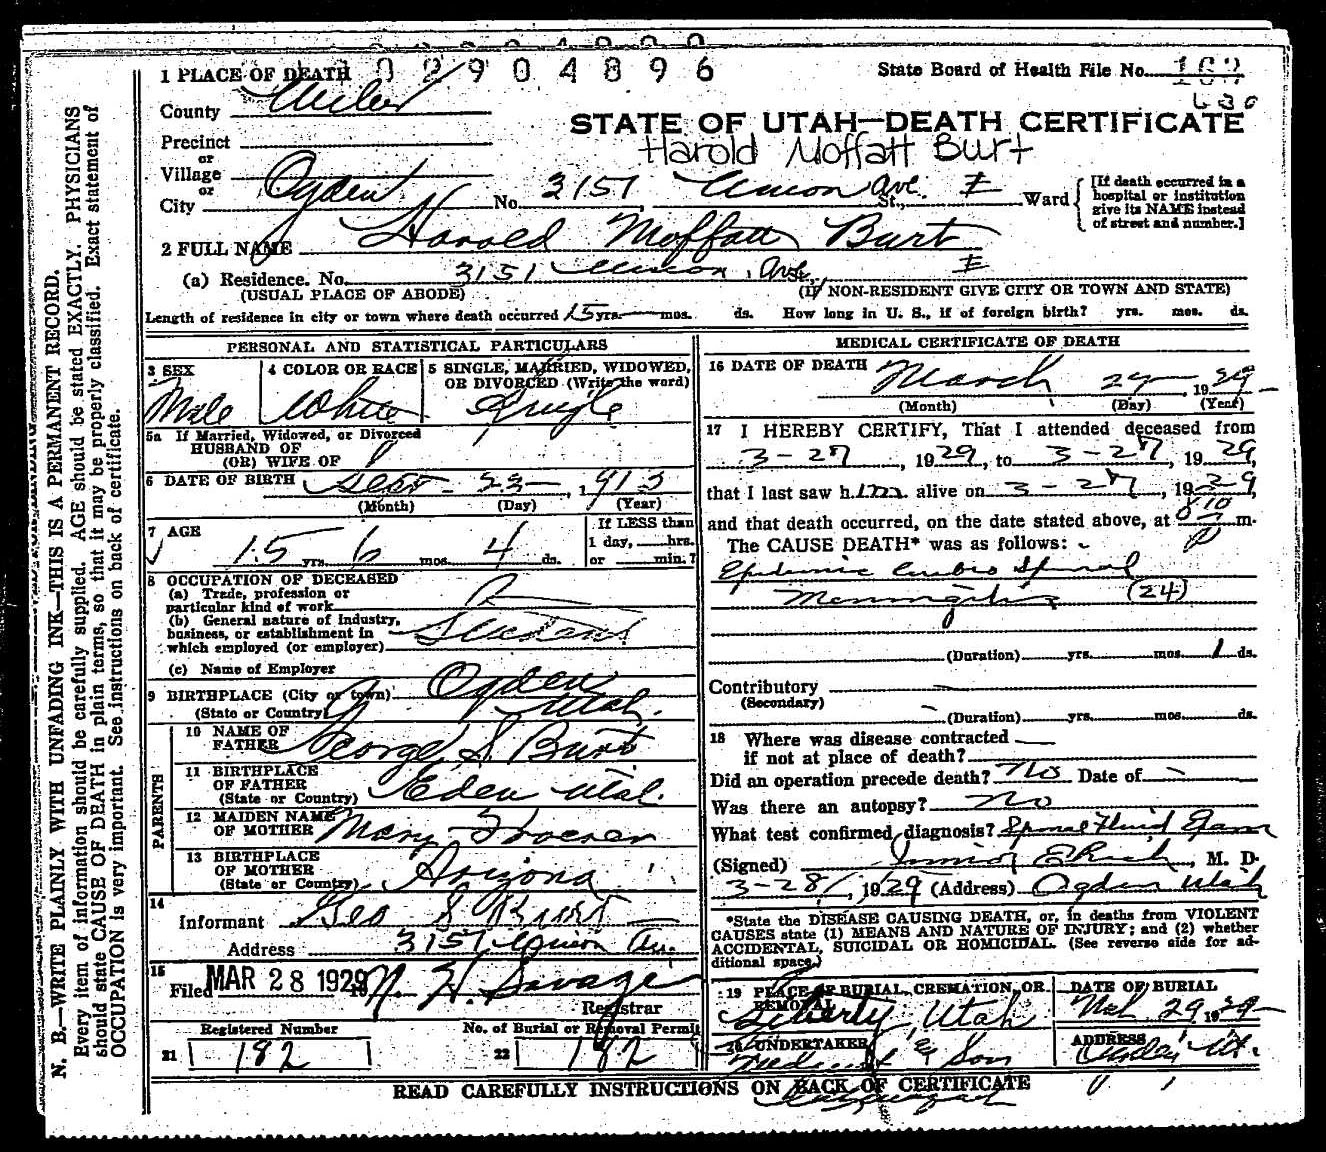 2904896
1 PLACE OF DEATH
State Board of Health File No. 182
630
County Weber
STATE OF UTAH—DEATH CERTIFICATE
Harold Moffatt Burt
Precinct
or
Village
or
City Ogden No. 3151 Union Ave. St., E Ward
[If death occurred in a hospital or institution give its NAME instead of street and number.]
2 FULL NAME Harold Moffatt Burt
(a) Residence. No. 3151 Union Ave. E
(USUAL PLACE OF ABODE) (If NON-RESIDENT GIVE CITY OR TOWN AND STATE)
Length of residence in city or town where death occurred 15 yrs. mos. ds. How long in U. S., if of foreign birth? yrs. mos. ds.
PERSONAL AND STATISTICAL PARTICULARS
3 SEX Male
4 COLOR OR RACE White
5 SINGLE, MARRIED, WIDOWED, OR DIVORCED (Write the word) Single
5a If Married, Widowed, or Divorced
HUSBAND OF
(OR) WIFE OF
6 DATE OF BIRTH Sept - 23 - 1913
(Month) (Day) (Year)
7 AGE 15 yrs. 6 mos. 4 ds.
If LESS than
1 day, hrs.
or min.?
8 OCCUPATION OF DECEASED
(a) Trade, profession or
particular kind of work
(b) General nature of industry,
business, or establishment in
which employed (or employer) Student
(c) Name of Employer
9 BIRTHPLACE (City or town) Ogden
(State or Country) Utah.
PARENTS
10 NAME OF FATHER George S. Burt
11 BIRTHPLACE OF FATHER (State or Country) Eden Utah.
12 MAIDEN NAME OF MOTHER Mary
13 BIRTHPLACE OF MOTHER (State or Country) Arizona
14
Informant Geo S Burt
Address 3151 Union Av.
15
Filed MAR 28 1929 19 N. H. Savage
Registrar
Registered Number
21 182
No. of Burial or Removal Permit
22 182
MEDICAL CERTIFICATE OF DEATH
16 DATE OF DEATH March 27 1929
(Month) (Day) (Year)
17 I HEREBY CERTIFY, That I attended deceased from
3-27, 1929, to 3-27, 1929,
that I last saw him alive on 3-27, 1929
and that death occurred, on the date stated above, at 8 10 P m.
The CAUSE DEATH* was as follows:
Epidemic Cerebro Spinal
Meningitis (24)
(Duration) yrs. mos. 1 ds.
Contributory
(Secondary)
(Duration) yrs. mos. ds.
18 Where was disease contracted
if not at place of death?
Did an operation precede death? No Date of
Was there an autopsy? No
What test confirmed diagnosis? Spinal Fluid Exam
(Signed) Junior E Rich, M. D.
3-28, 1929 (Address) Ogden Utah
*State the DISEASE CAUSING DEATH, or, in deaths from VIOLENT
CAUSES state (1) MEANS AND NATURE OF INJURY; and (2) whether
ACCIDENTAL, SUICIDAL OR HOMICIDAL. (See reverse side for ad-
ditional space.)
19 PLACE OF BURIAL, CREMATION, OR REMOVAL Liberty, Utah
DATE OF BURIAL Mch 29 1929
20 UNDERTAKER & Son
ADDRESS Ogden Ut.
READ CAREFULLY INSTRUCTIONS ON BACK OF CERTIFICATE
N. B.—WRITE PLAINLY WITH UNFADING INK—THIS IS A PERMANENT RECORD.
Every item of information should be carefully supplied. AGE should be stated EXACTLY. PHYSICIANS
should state CAUSE OF DEATH in plain terms, so that it may be properly classified. Exact statement of
OCCUPATION is very important. See instructions on back of certificate.